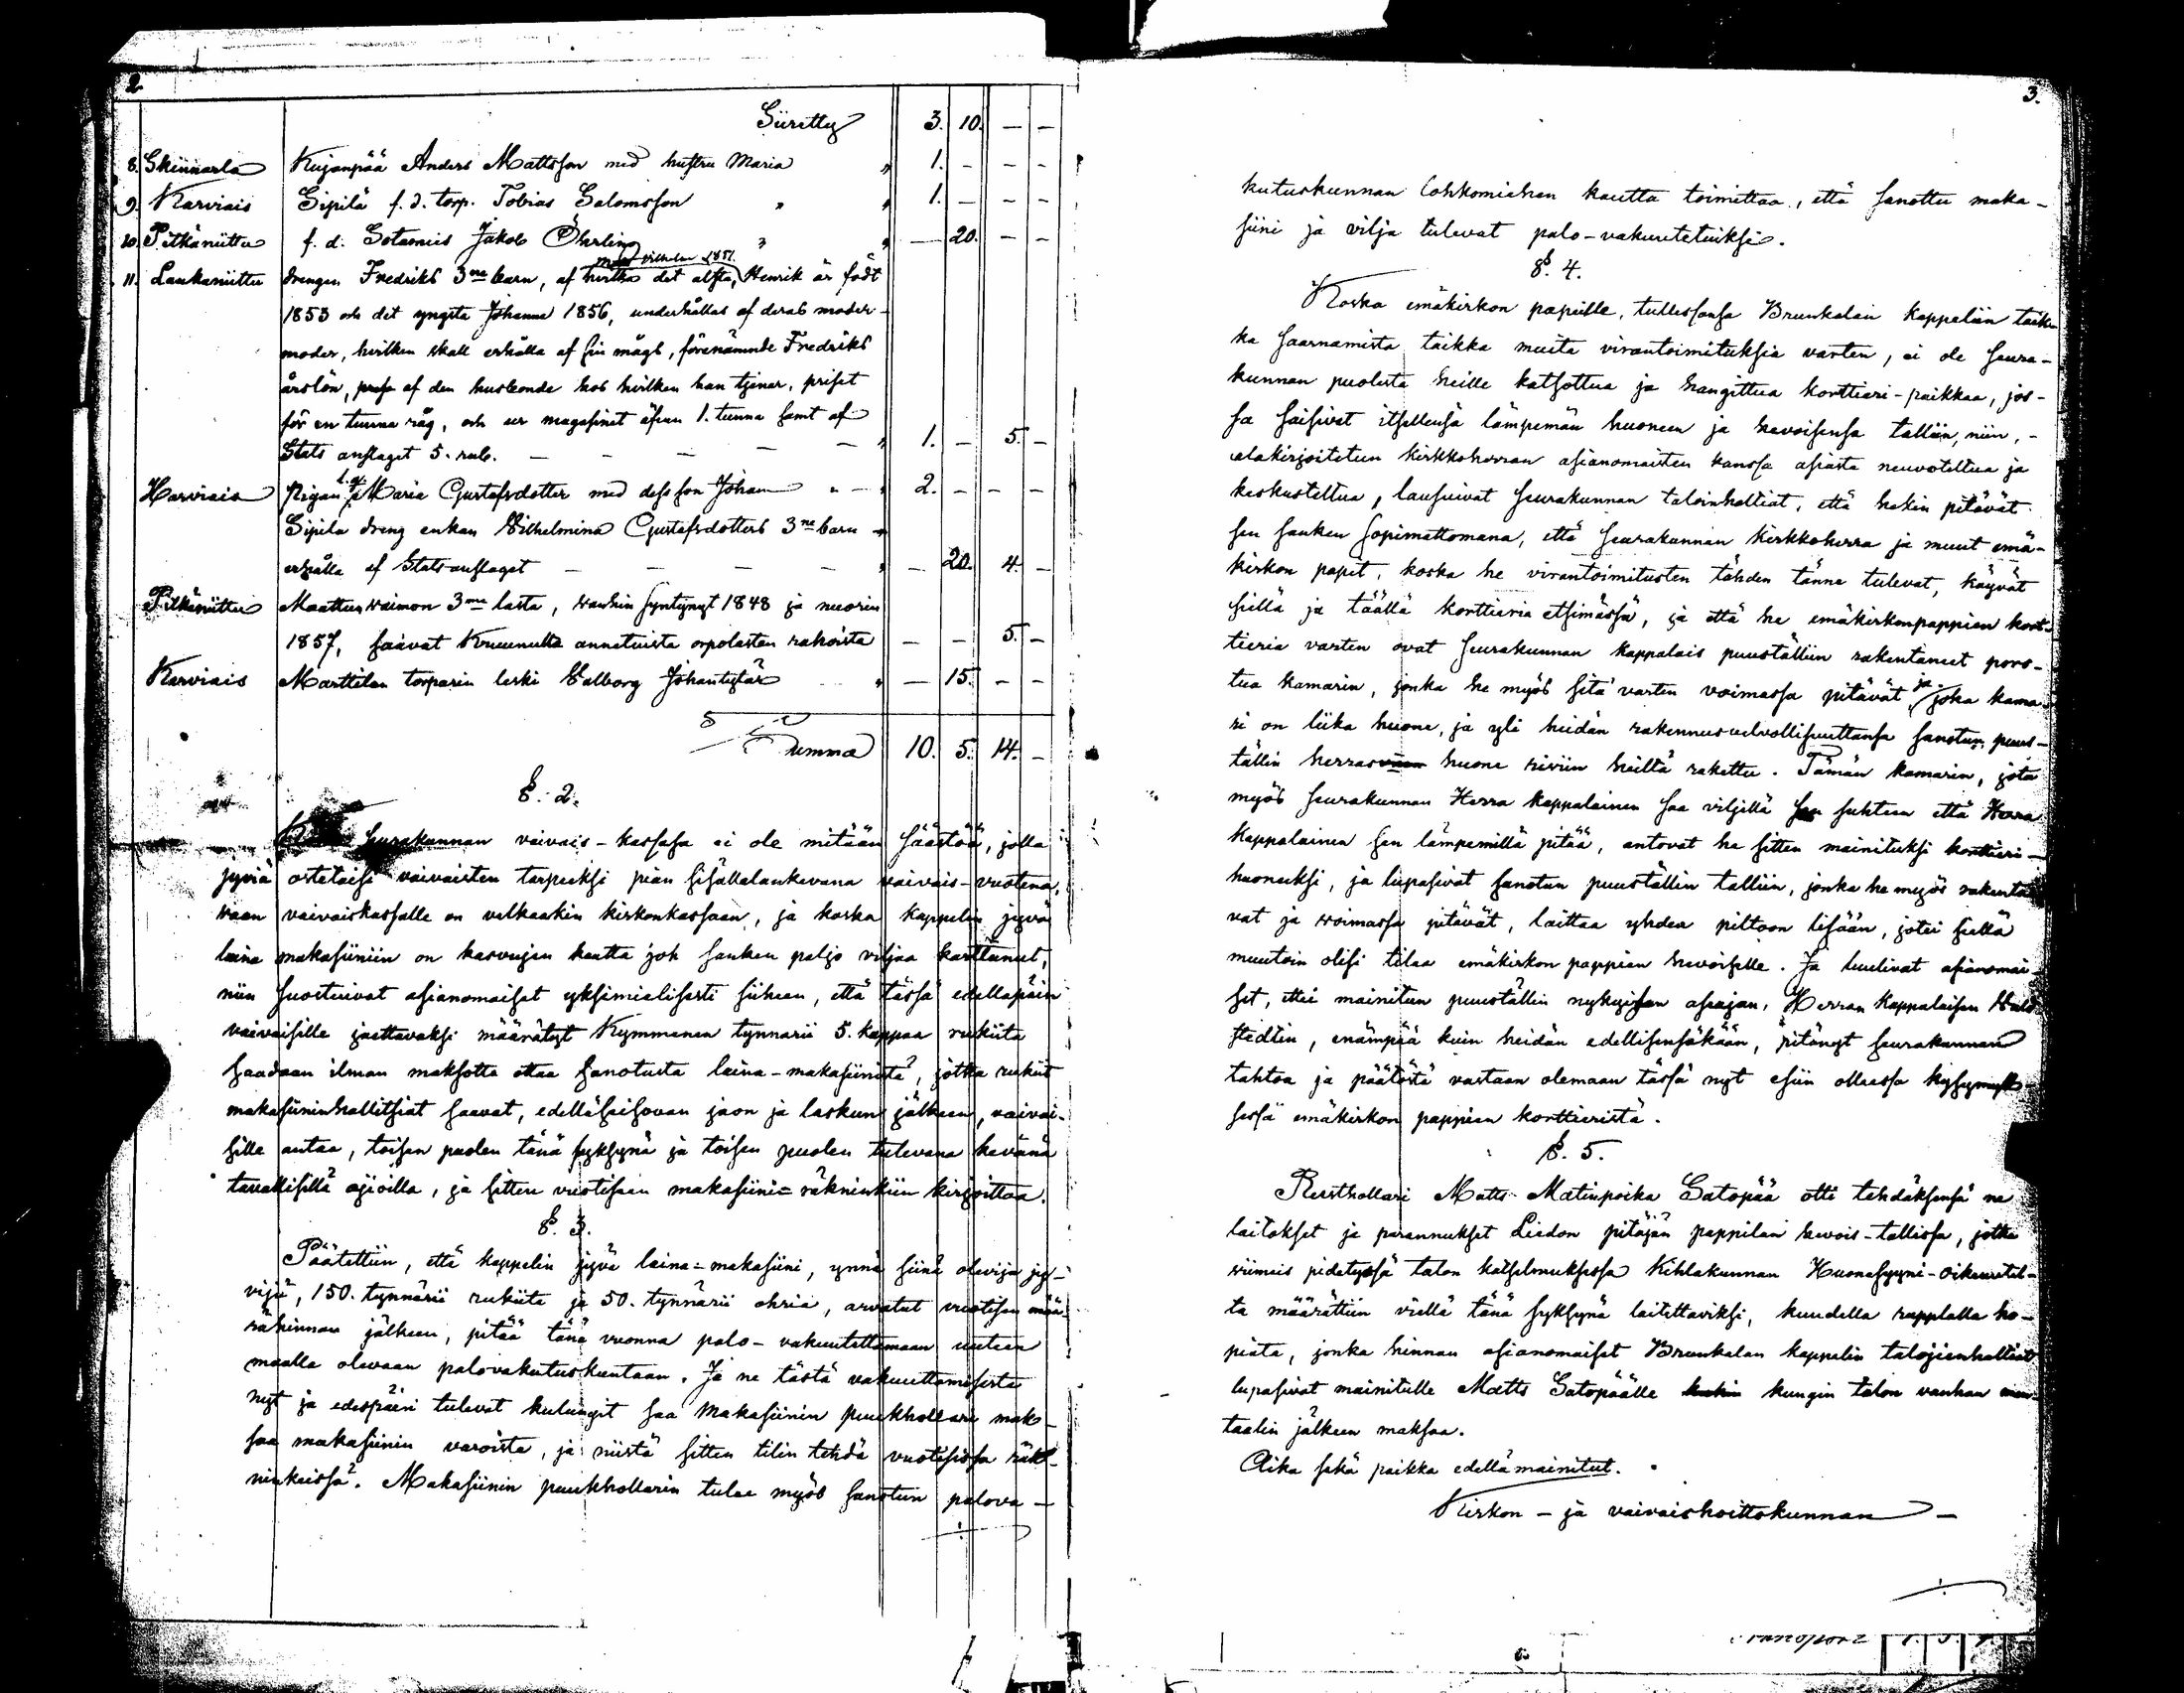 2.
Siiretty 3. 10. — —
8. Skinnarla Kujanpää Anders Mattsson med hustru Maria " 1. — — —
9. Karviais Sipilä f. d. torp. Tobias Salomsson " " 1. — — —
10. Pitkäniittu f. d. Sotamies Jakob Öhrling " " — 20. — —
11. Laukaniittu drengen Fredriks 3ne barn, af hvilka det älsta, Henrik är födt
1853 och det yngsta Johanna 1856, underhållas af deras moder-
moder, hvilken skall erhålla af sin mågs, förenämnde Fredriks
årslön, af den husbonde hos hvilken han tjenar, priset
för en tunna råg, och ur magasinet äfven 1. tunna samt af
Stats anslaget 5. rub. — — — — — " 1. — 5. —
Karviais Pigan Maria Gustafsdotter med dess son Johan " — " 2. — — —
Sipila dreng enkan Wilhelmina Gustafsdotters 3ne barn
erhålla af Statsanslaget — — — — " — 20. 4. —
Pitkäniittu Maattus waimon 3me lasta, wanhin syntynyt 1848 ja nuorin
1857, saavat Kruunulta annetuista orpolasten rahoista — — 5. —
Karviais Marttilan torparin leski Walborg Johantytär " — 15. — —
Summa 10. 5. 14. —
§. 2.
seurakunnan vaivais-kassasa ei ole mitään säästöä, jolla
jyviä ostetaisi vaivaisten tarpeeksi pian sisällalankevana vaivais-vuotena,
waan vaivaiskassalle on velkaakin kirkonkassaan, ja koska kappelin jyvä
laina makasiiniin on kasvujen kautta joh sanken paljo viljaa karttunut,
niin suostuivat asianomaiset yksimielisesti siihen, että tässä edellapäin
vaivaisille jaettavaksi määrätyt Kymmenen tynnarii 5. kappaa rukiita
saadaan ilman maksotta ottaa sanotusta laina-makasiinista, jotka rukiit
makasiininhallitsiat saavat, edelläseisovan jaon ja laskun jälkeen, vaivai-
sille antaa, toisen puolen tänä syksynä ja toisen puolen tulevana kevänä
tavallisillä ajoilla, ja sitten vuotisaan makasiini-räkninkiin kirjoittaa.
§. 3.
Päätettiin, että kappelin jyvä laina-makasiini, ynnä siinä olevija jy-
vijä, 150. tynnärii rukiita ja 50. tynnärii ohria, arvatut vuotisen mää-
rähinnan jälkeen, pitää tänä vuonna palo-vakuutettamaan uuteen
maalla olevaan palovakutuskuntaan. Ja ne tästä vakuuttamisesta
nyt ja edespäin tulevat kulungit saa Makasiinin puukhollari mak-
saa makasiinin varoista, ja niistä sitten tilin tehdä vuotisissa räk-
ninkeissä. Makasiinin puukhollarin tulee myös sanotun palova-
3.
kutuskunnan lohkomiehen kautta toimittaa, että sanottu maka-
siini ja vilja tulevat palo-vakuutetuiksi.
§. 4.
Koska emäkirkon papeille, tullessansa Brunkalan kappeliin taik-
ka saarnamista taikka muita virantoimituksia varten, ei ole seura-
kunnan puolesta heille katsottua ja hangittua korttieri-paikkaa, jos-
sa saisivat itsellensä lämpemän huoneen ja hevoisensa talliin, niin, -
alakirjoitetun kirkkoherran asianomaisten kanssa asiasta neuvoteltua ja
keskusteltua, lausuivat seurakunnan taloinhaltiat, että hekin pitävät
sen sanken sopimattomana, että seurakunnan kirkkoherra ja muut emä-
kirkon papit, koska he virantoimitusten tähden tänne tulevat, käyvät
siellä ja täällä korttieria etsimässä, ja että he emäkirkonpappien kort-
tieria varten ovat seurakunnan kappalais puuställiin rakentaneet pors-
tua kamarin, jonka he myös sitä varten voimassa pitävät, ja joka kama-
ri on liika huone, ja yli heidän rakennusvelvollisuuttansa sanotun puus-
tällin herras huone riviin heiltä rakettu. Tämän kamarin, jota
myös seurakunnan Herra kappalainen saa viljellä sen suhteen että Herra
Kappalainen sen lämpemillä pitää, antovat he sitten mainituksi korttieri-
huoneuksi, ja lupasivat sanotun puuställin talliin, jonka he myös rakenta-
vat ja woimassa pitävät, laittaa yhden piltoon lisään, jotei siellä
muutoin olisi tilaa emäkirkon pappien hevoiselle. Ja luulivat asianomai-
set, ettei mainitun puuställin nykyisen asujan, Herran Kappalaisen
stedtin, enämpää kuin heidän edellisensäkään, pitänyt seurakunnan
tahtoa ja päätöstä vastaan olemaan tässä nyt esiin olleessa kysymyk-
sessä emäkirkon pappien korttieristä.
§. 5.
Rusthollari Matts Matinpoika Satopää otti tehdäksensä ne
laitokset ja parannukset Liedon pitäjän pappilan hevois-tallissa, jotka
viimeis pidetyssä talon katselmuksessa Kihlakunnan Huonesyyni-oikeudel-
ta määrättiin vielä tänä syksynä laitettaviksi, kuudella rupplalla ho-
piata, jonka hinnan asianomaiset Brunkalan kappelin talojenhaltiat
lupasivat mainitulle Matts Satopäälle kungin talon vanhan man-
taalin jälkeen maksaa.
Aika sekä paikka edellämainitut.
Kirkon- ja vaivaishoittokunnan —